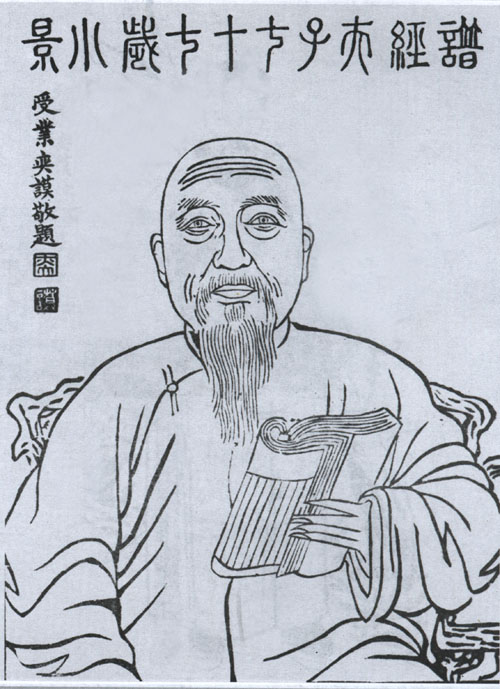 譜經夫子七十七歲小景
受業奕謨敬題